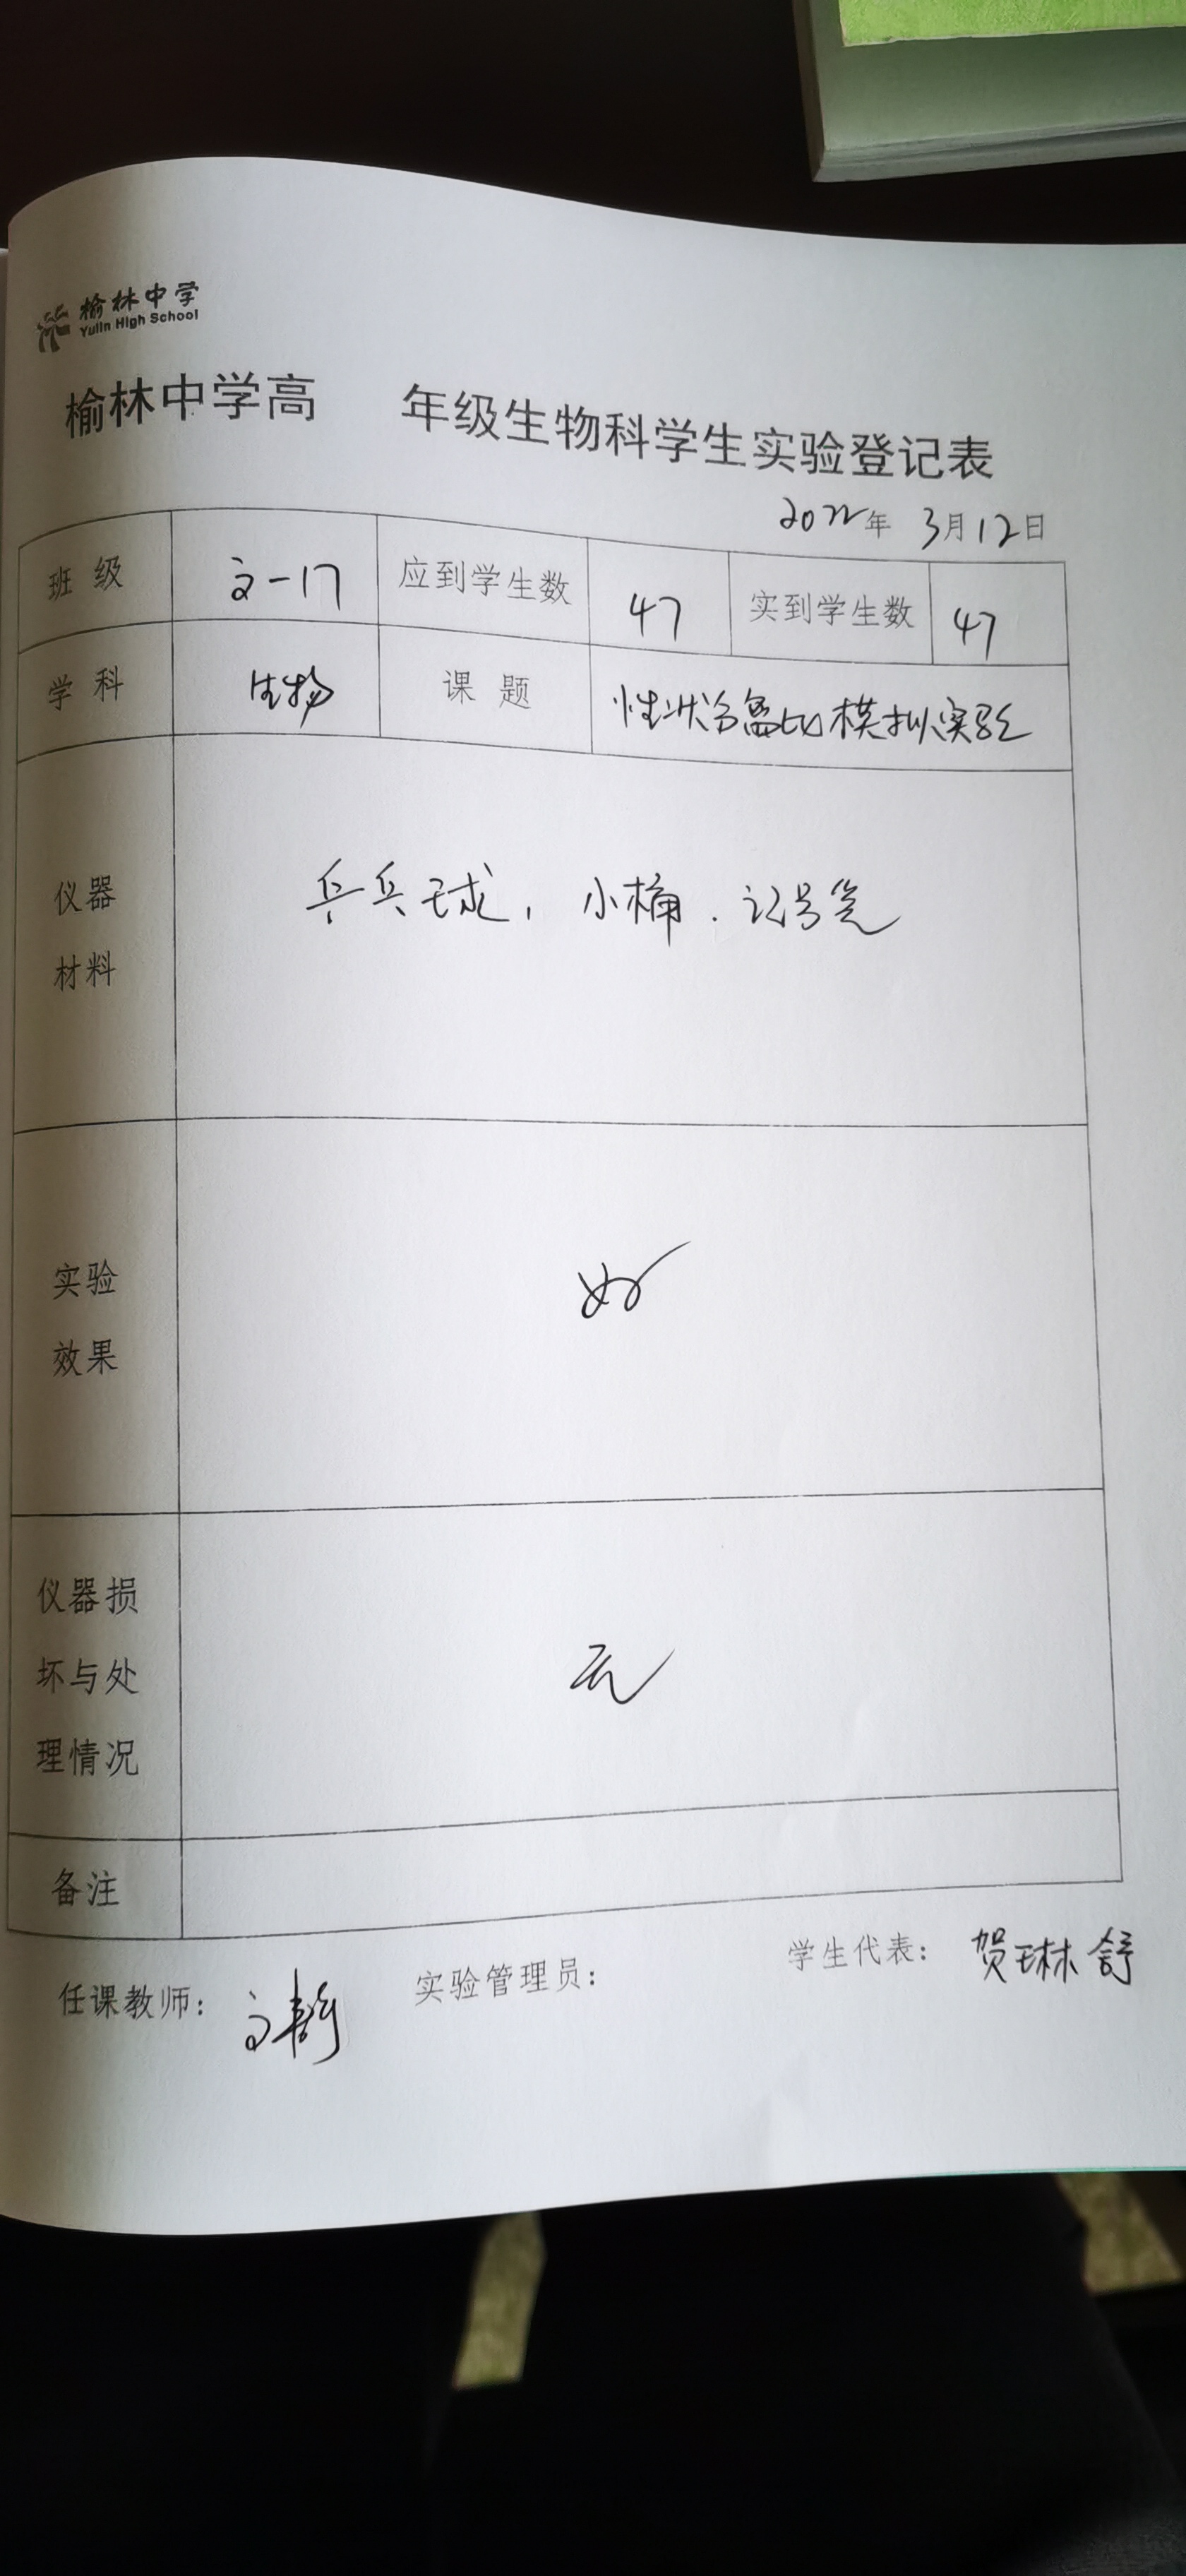 榆林中学
Yulin High School
榆林中学高 年级生物科学生实验登记表
2022年 3月12日
班 级 高一17 应到学生数 47 实到学生数 47
学 科 生物 课 题 性状分离比模拟实验
仪器
材料
乒乓球, 小桶. 记号笔
实验
效果
好
仪器损
坏与处
理情况
无
备注
任课教师: 实验管理员: 学生代表: 贺琳舒